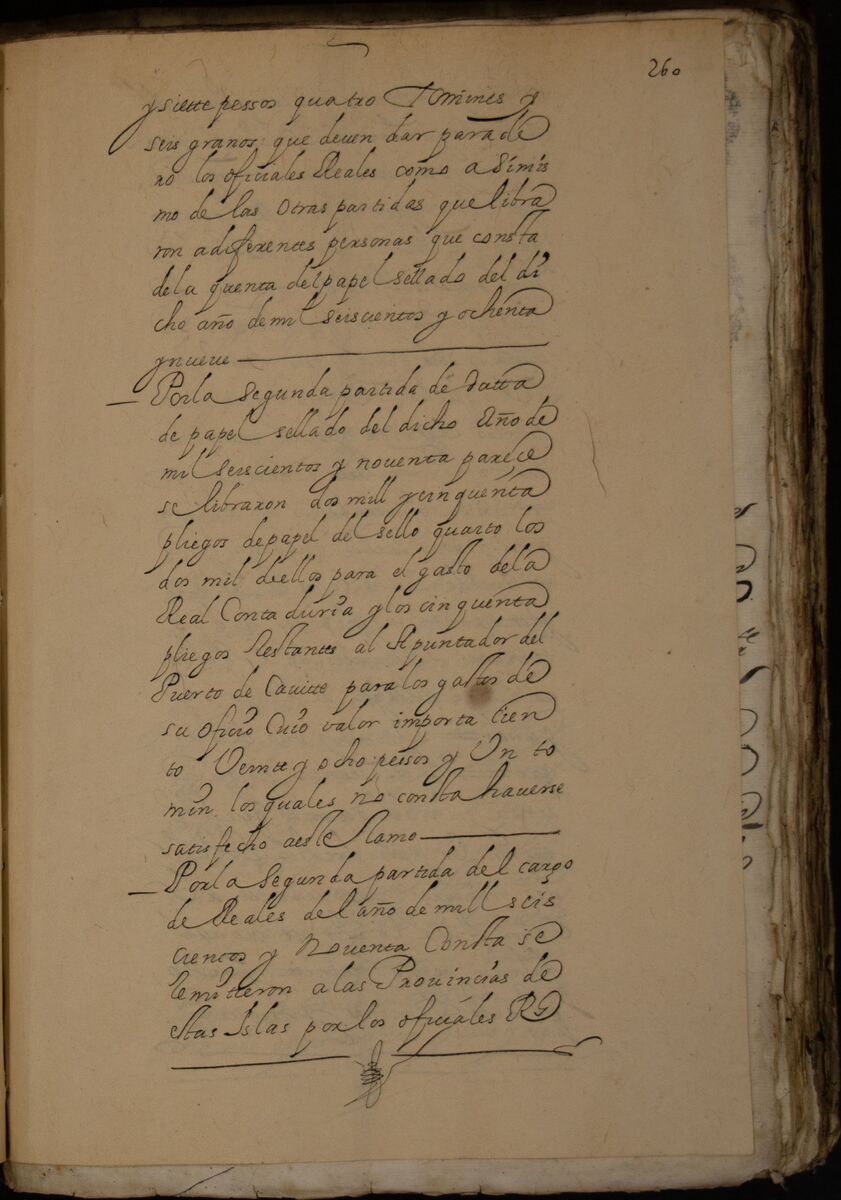 260
y siette pessos quatro Tomines y
seis granos que deven dar parade
ro los oficiales Reales como asimis
mo de las otras partidas que libra
ron a diferentes personas que consta
dela quenta del papel sellado del di
cho año de mil seiscientos y ochenta
y nueve
Por la segunda partida de datta
de papel sellado del dicho Año de
mil seiscientos y noventa parece
se libraron dos mill y cinquenta
pliegos de papel del sello quarto los
dos mil deellos para el gasto dela
Real Contaduria y los cinquenta
pliegos Restantes al Apuntador del
Puerto de Cauitte para los gastos de
su oficio Cuio valor importa Cien
to Veinte y ocho pessos y Un to
min los quales no consta haverse
satisfecho aeste Ramo
Por la segunda partida del cargo
de Reales del año de mill seis
cientos y Noventa Consta se
Remitieron a las Provincias de
stas Islas por los oficiales Rs